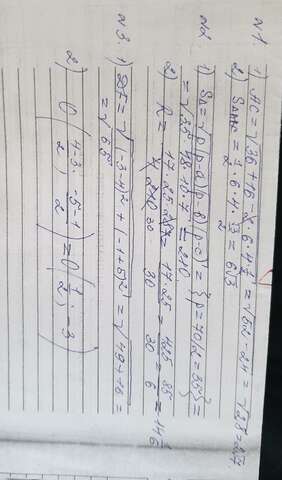 N1. 1) AC = √36 + 16 - 2·6·4·1/2 = √52 - 24 = √28 = 2√7
2) S_ABC = 1/2 · 6 · 4 · √3/2 = 6√3
N2. 1) S_Δ = √p(p-a)(p-b)(p-c) = {p = 70/2 = 35} =
= √35·18·10·7 = 210
2) R = 17·25·28/4·210 = 17·25/30 = 425/30 = 85/6 = 14 1/6
N3. 1) DF = √(-3-4)² + (-1+5)² = √49+16 =
= √65
2) O (4-3/2; -5-1/2) = O (1/2; -3)